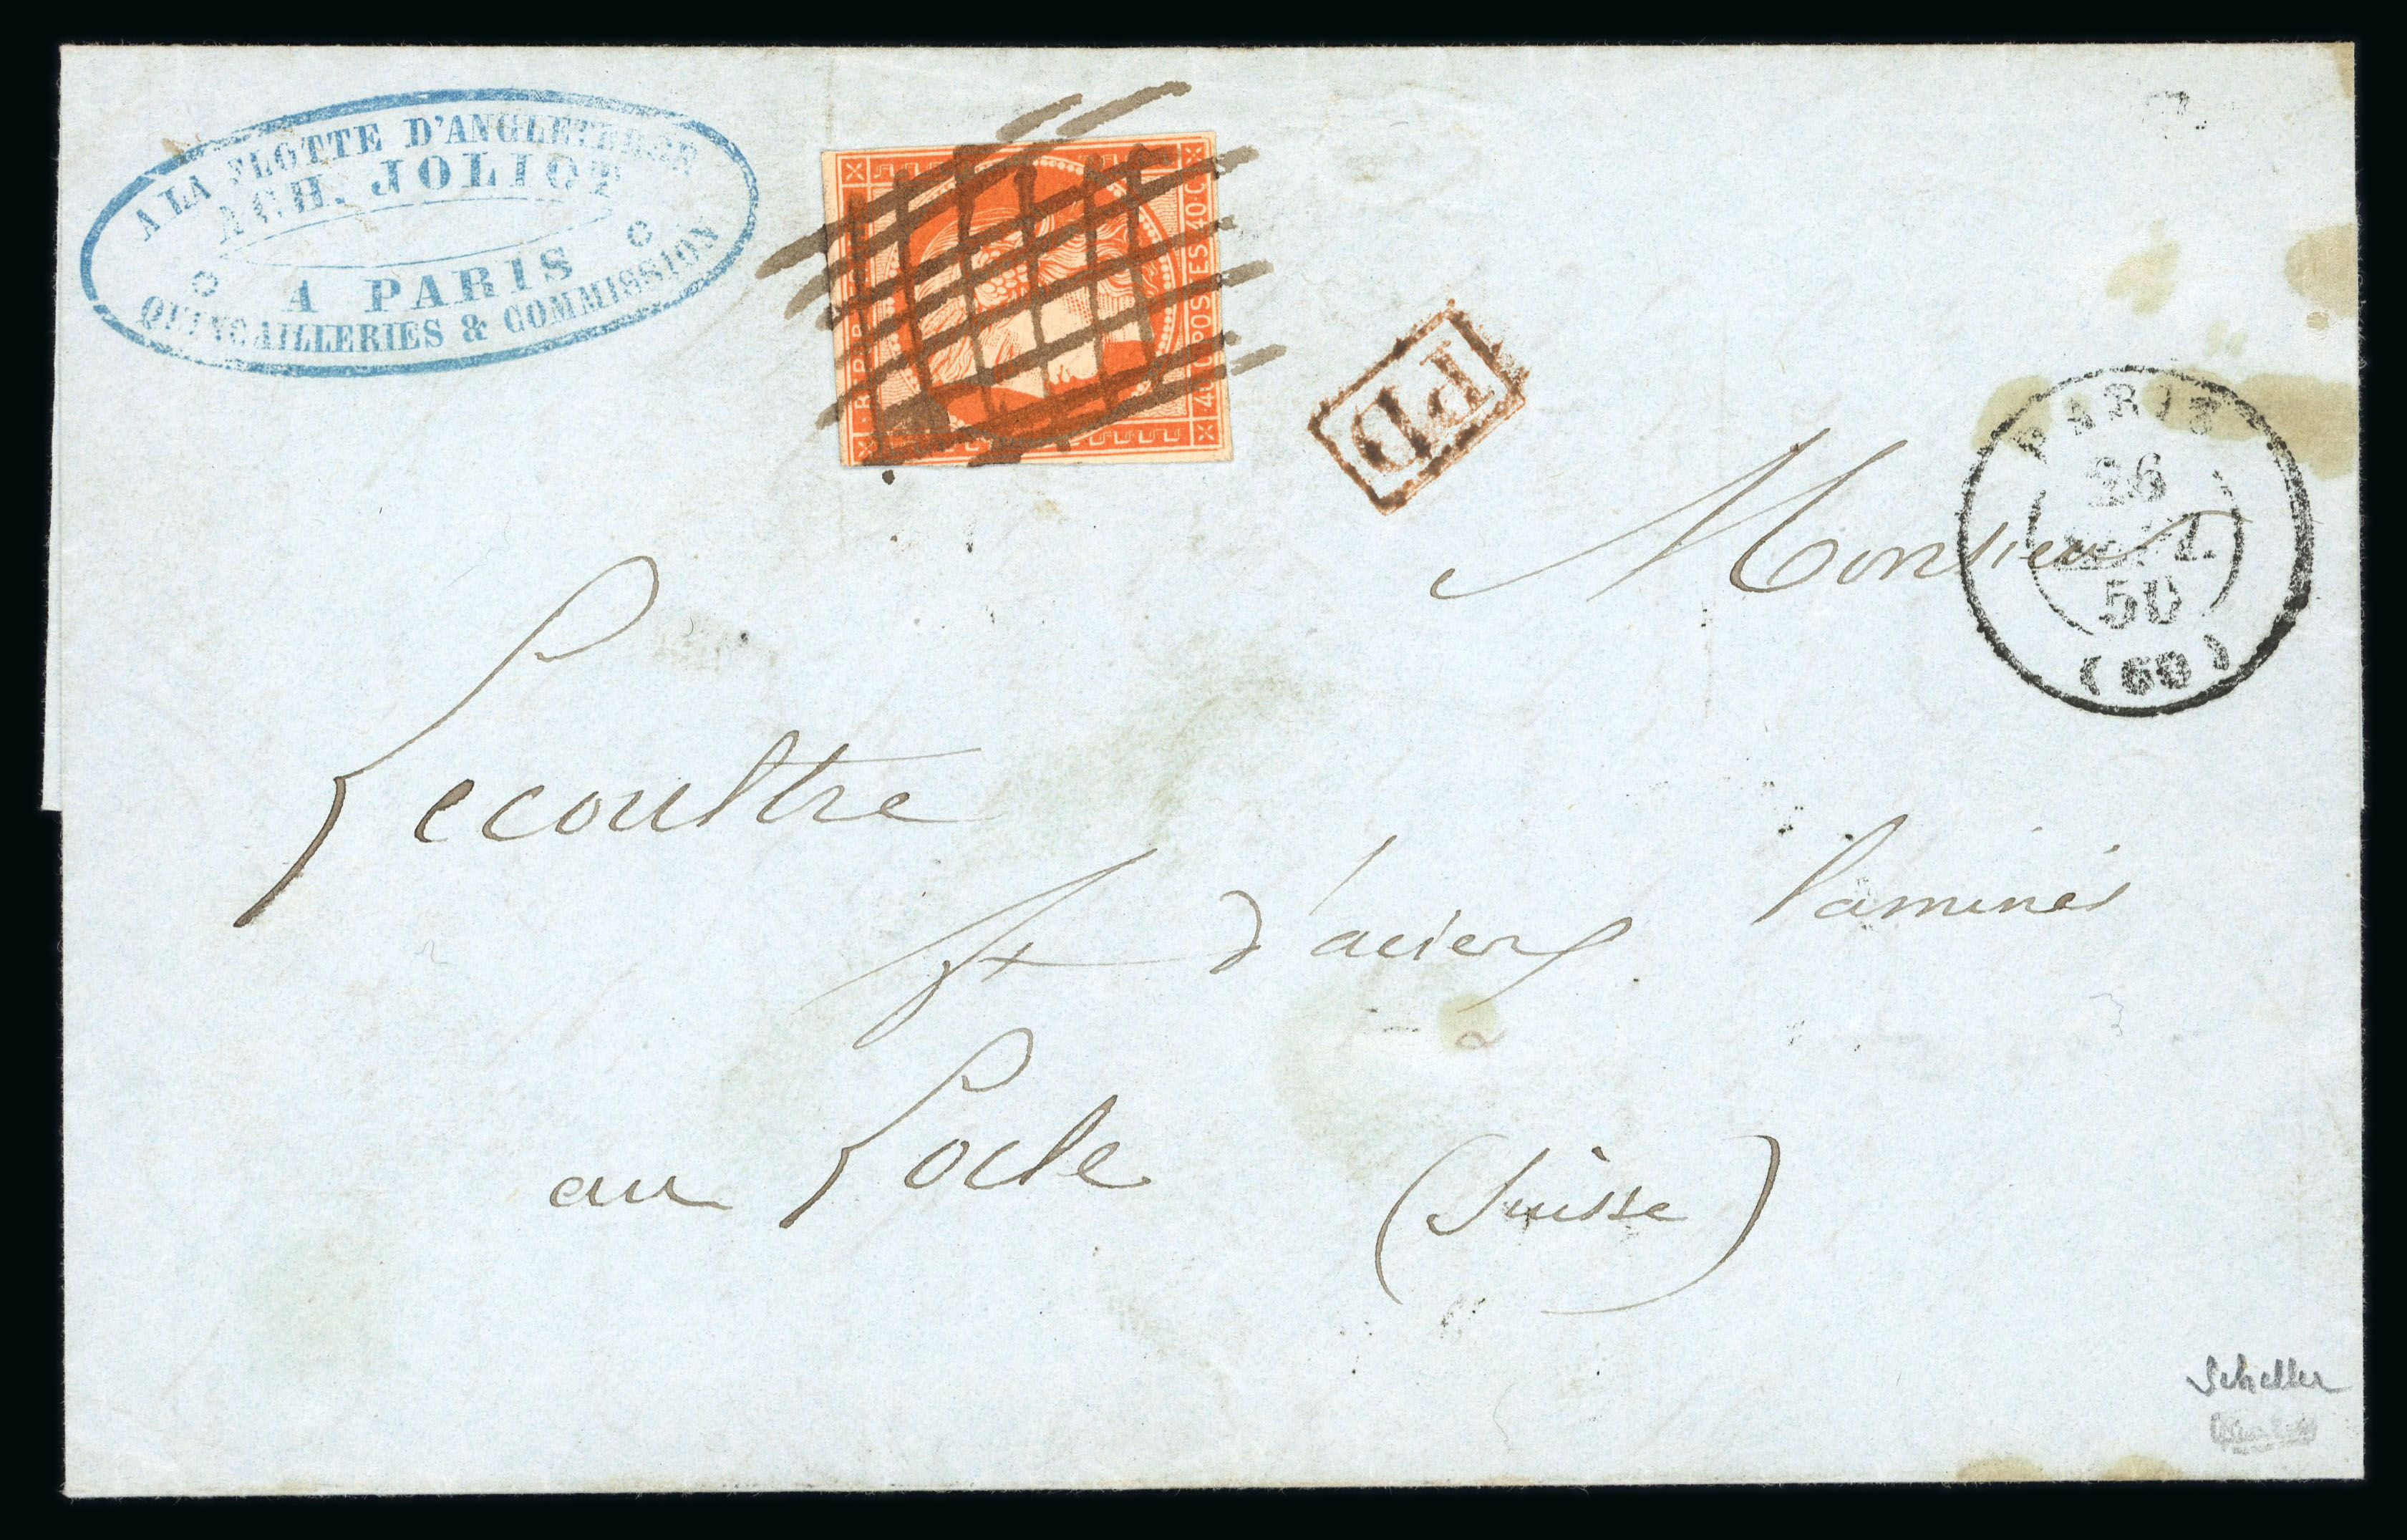 A LA FLOTTE D'ANGLETERRE
ACH. JOLIOT
A PARIS
QUINCAILLERIES & COMMISSION
REP. FR
40 C. POSTES 40 C.
PD
PARIS
26
50
(60)
Monsieur
Lecoultre
ft d'aciers laminés
au Locle (Suisse)
Scheller